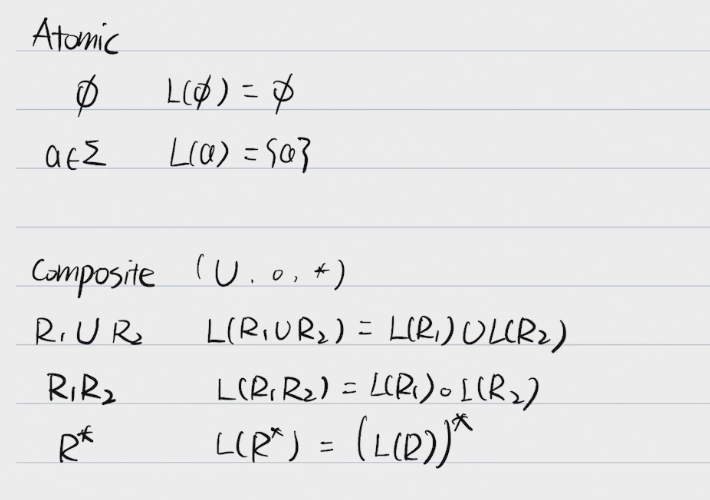 Atomic
ϕ L(ϕ) = ϕ
a∈Σ L(a) = {a}
Composite (∪, ∘, *)
R₁ ∪ R₂ L(R₁∪R₂) = L(R₁)∪L(R₂)
R₁R₂ L(R₁R₂) = L(R₁)∘L(R₂)
R* L(R*) = (L(R))*